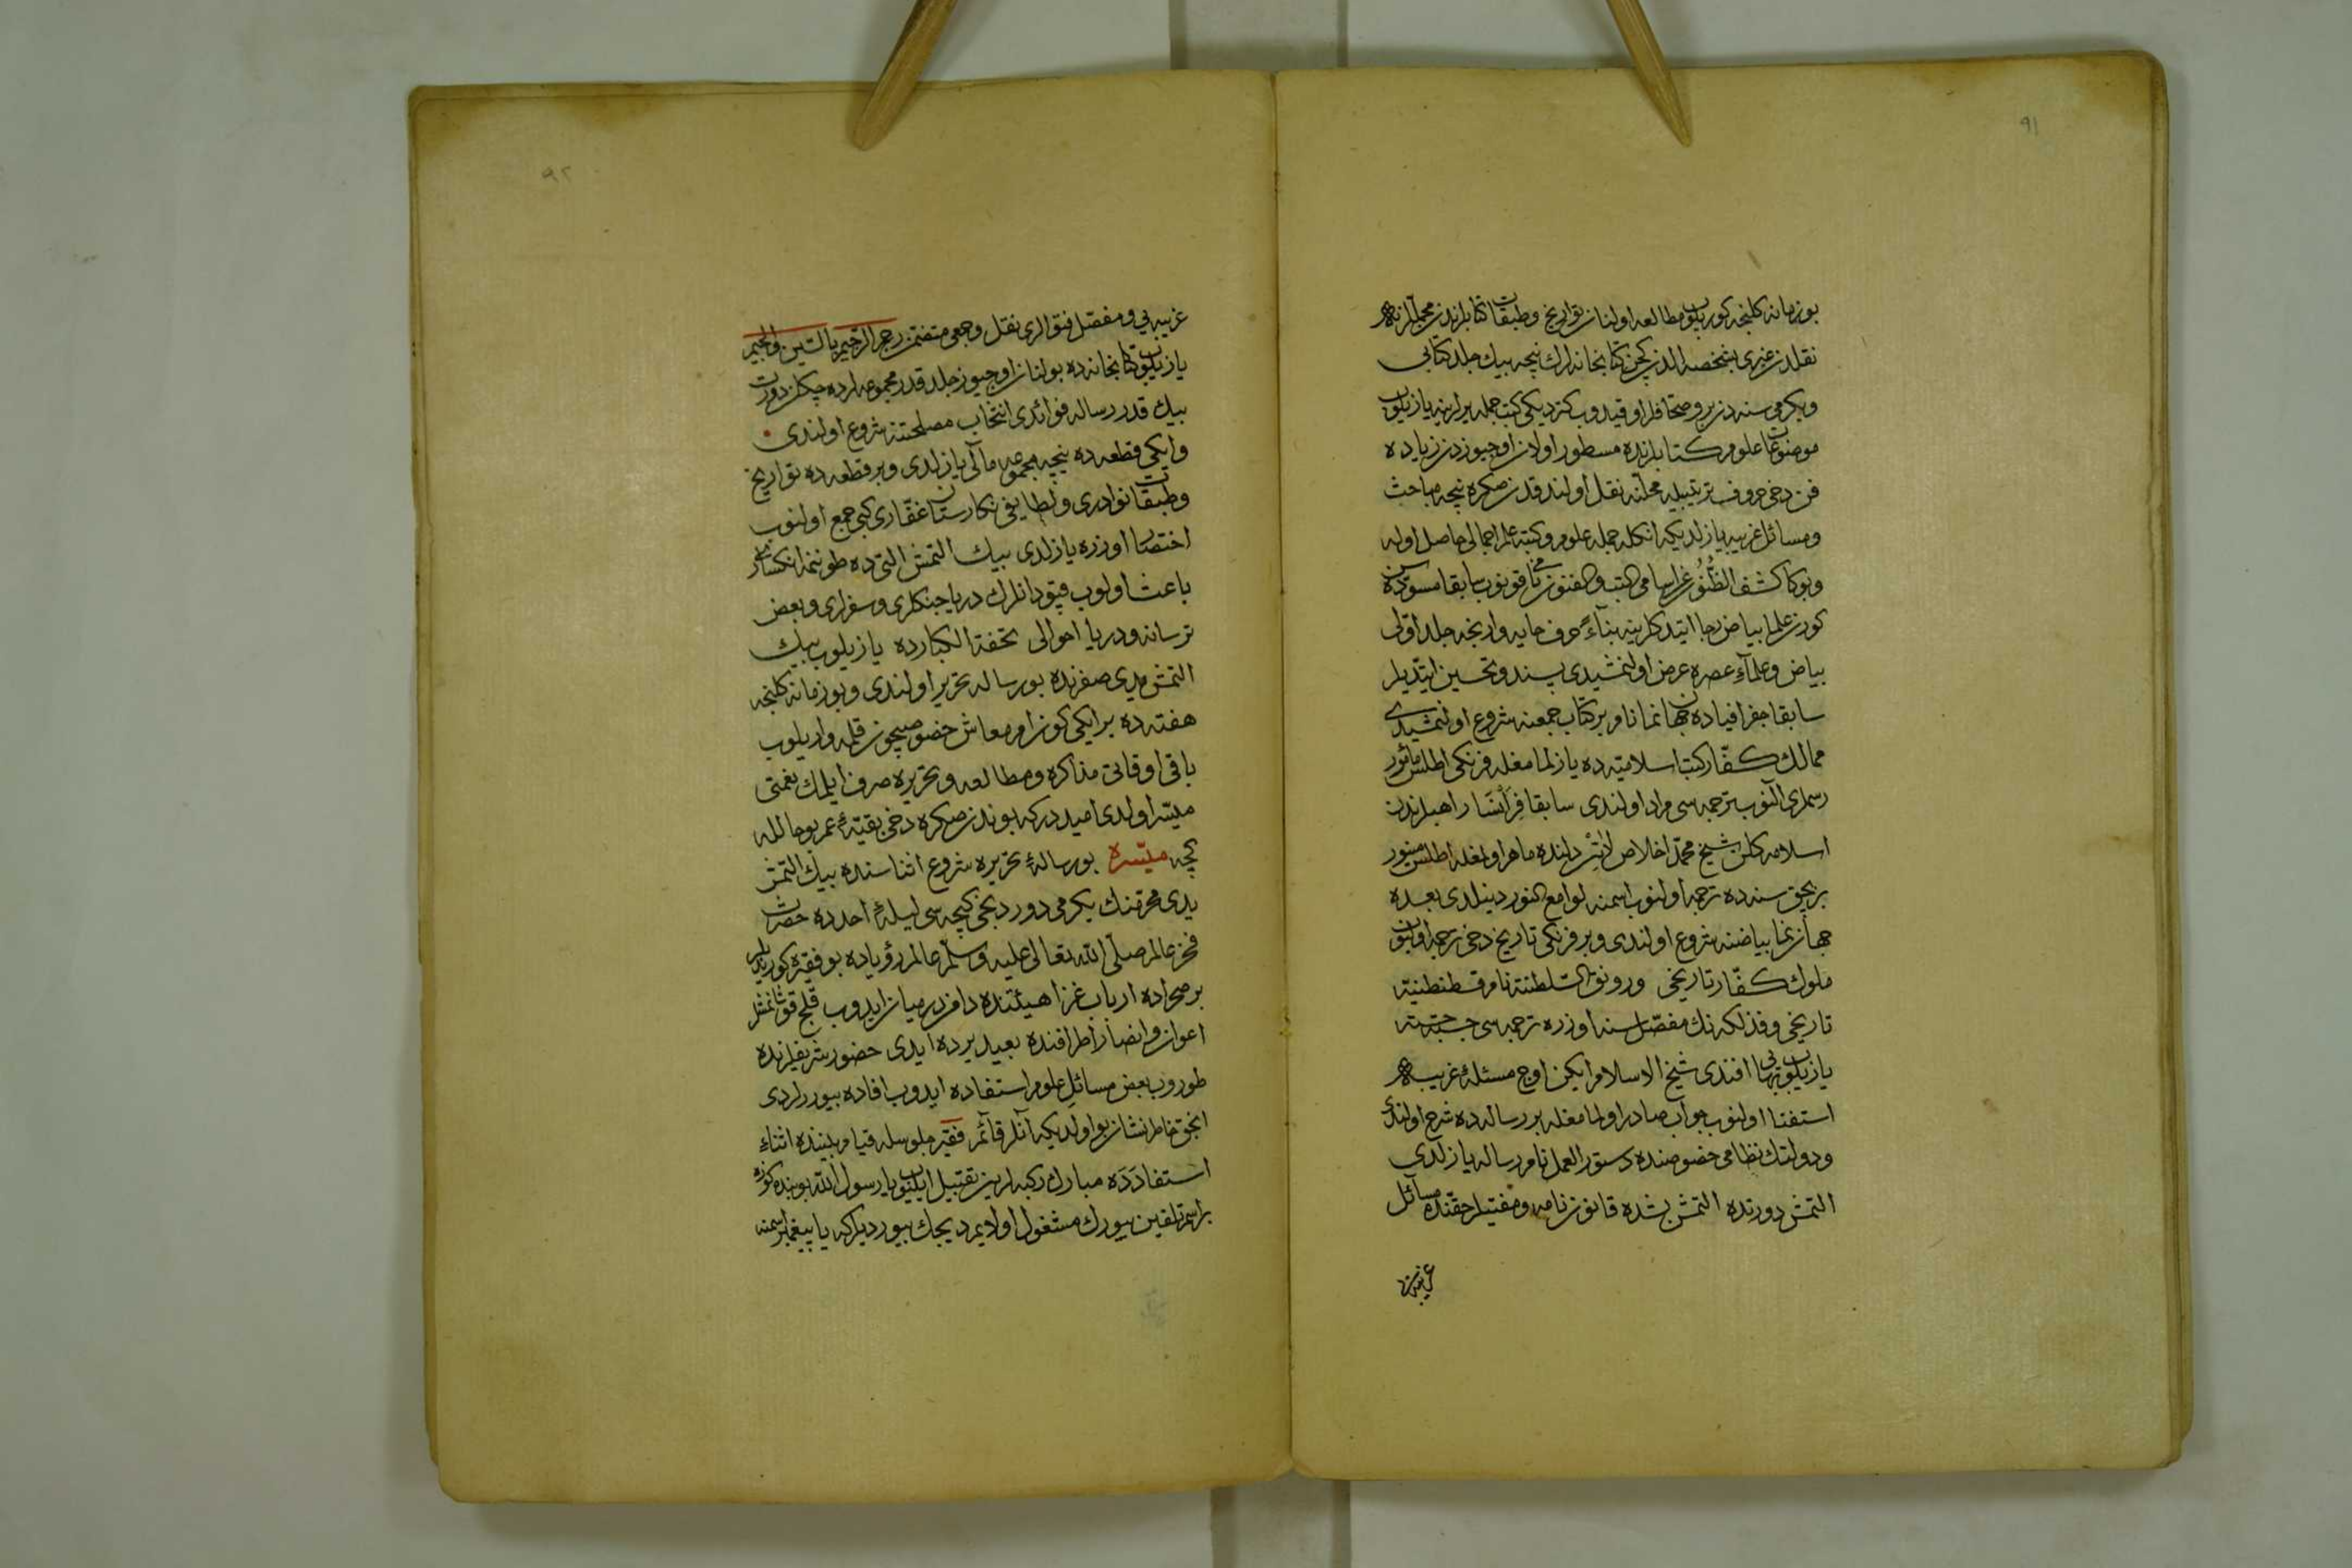 ٩١
بو زمانه كلنجه كوريلوب مطالعه اولنان تواريخ وطبقات كتابلرندن مجملا
نقلدن غيرى بشخصه الدن كچن كتابخانه لرك نيچه بيك جلد كتابى
ويكرمى سنه دن برو صحافلر اوقيدوب كزديكى كتب جمله يرلرينه يازيلوب
موضوعات علوم كتابلرنده مسطور اولان اوچيوزدن زياده
فن دخى حروف ترتيبيله محلنه نقل اولندقدن صكره نيچه مباحث
ومسائل غريبه يازلديكه انكله جمله علوم وكتبه علم اجمالى حاصل اوله
وبو كتاب كشف الظنون عن اسامى الكتب والفنون نامى قونوب سابقا مسوده سن
كورن علما بياض رجا ايتدكلرينه بناءً حرف حايه وارنجه جلد اولى
بياض وعلمآء عصره عرض اولنمشيدى پسند وتحسين ايتديلر
سابقا جغرافياده جهان نما نام بر كتاب جمعنه شروع اولنمشيدى
ممالك كفار كتب اسلاميه ده يازلمامغله فرنكى اطلس مائنور
رسملرى آلنوب ترجمه سى مراد اولندى سابقا فرانسا راهبلرندن
اسلامه كلن شيخ محمد اخلاص لاتن دلنده ماهر اولمغله اطلس مينور
بر بچق سنه ده ترجمه اولنوب اسمنه لوامع النور دينلدى بعده
جهان نما بياضنه شروع اولندى وبر فرنكى تاريخ دخى ترجمه اولنوب
ملوك كفار تاريخى ورونق السلطنة نام قسطنطنيه
تاريخى وفذلكه نك مفصل سنه اوزره ترجمه سى جسته جسته
يازيلوب بهائى افندى شيخ الاسلام ايكن اوچ مسئلهٔ غريبه
استفتا اولنوب جواب صادر اولمامغله بر رساله ده شرح اولندى
ودولتك نظامى خصوصنده دستور العمل نام رساله يازلدى
التمش دورتده التمش بشده قانون نامه ومفتيلر حقنده مسائل
غريبه
٩٢
غريبه يى ومفصل فتوالرى نقل وجمعى متضمن رجم الرجيم بالسين والجيم
يازيلوب كتابخانه ده بولنان اوچيوز جلد قدر مجموعه لرده چكلن دورت
بيك قدر رساله فوائدى انتخاب مصلحتنه شروع اولندى
وايكى قطعه ده نيچه مجموعه مآلى يازلدى وبر قطعه ده تواريخ
وطبقات نوادرى ولطايفى نكارستان غفارى كبى جمع اولنوب
اختصار اوزره يازلدى بيك التمش التى ده طوننمه انكسارى
باعث اولوب قپودانلرك دريا جنكلرى وسفرلرى وبعض
ترسانه ودريا احوالى تحفة الكبارده يازيلوب بيك
التمش يدى صفرنده بو رساله تحرير اولندى وبو زمانه كلنجه
هفته ده بر ايكى كون امر معاش خصوصيچون قلمه واريلوب
باقى اوقاتى مذاكره ومطالعه وتحريره صرف ايلمك نعمتى
ميسر اولدى اميددركه بوندن صكره دخى بقيهٔ عمر بو حال له
كچه ميسره بو رسالهٔ تحريره شروع اثناسنده بيك التمش
يدى محرمنك يكرمى دوردنجى كيجه سى ليلهٔ احدده حضرت
فخر عالم صلى الله تعالى عليه وسلم عالم رؤياده بو فقيره كورنديلر
بر صحراده ارباب غزا هيئتنده دامن درميان ايدوب قلج قوشانمشلر
اعوان وانصار اطرافنده بعيد يرده ايدى حضور شريفلرنده
طوروب بعض مسائل علوم استفاده ايدوب افاده بيوررلردى
انجق خاطر نشان بو اولديكه آنلر قائم فقير جلوسله قيام بيننده اثناء
استفاده ده مبارك ركبه لرين تقبيل ايليوب يا رسول الله بو بنده كوزه
بر اسم تلقين بيورك مشغول اولايم ديجك بيورديلركه يا پيغمبر اسمنه